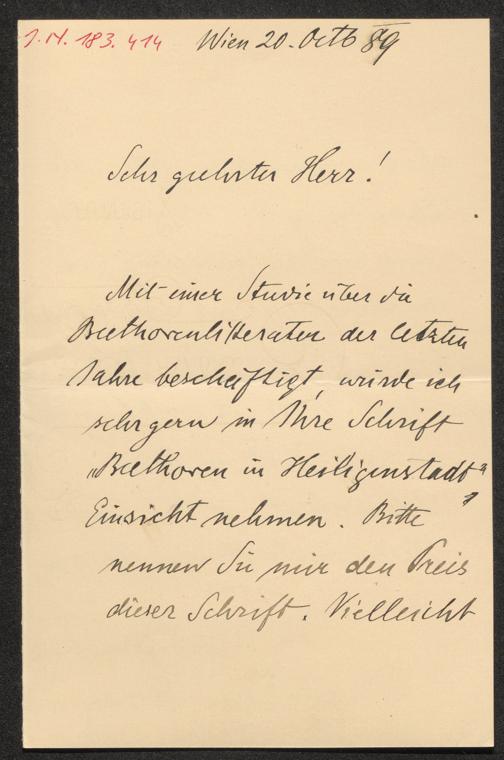 I.N. 183.414 Wien 20. Octb 89
Sehr geehrter Herr!
Mit einer Studie über die
Beethovenlitteratur der letzten
Jahre beschäftigt, würde ich
sehr gern in Ihre Schrift
„Beethoven in Heiligenstadt"
Einsicht nehmen. Bitte
nennen Sie mir den Preis
dieser Schrift. Vielleicht